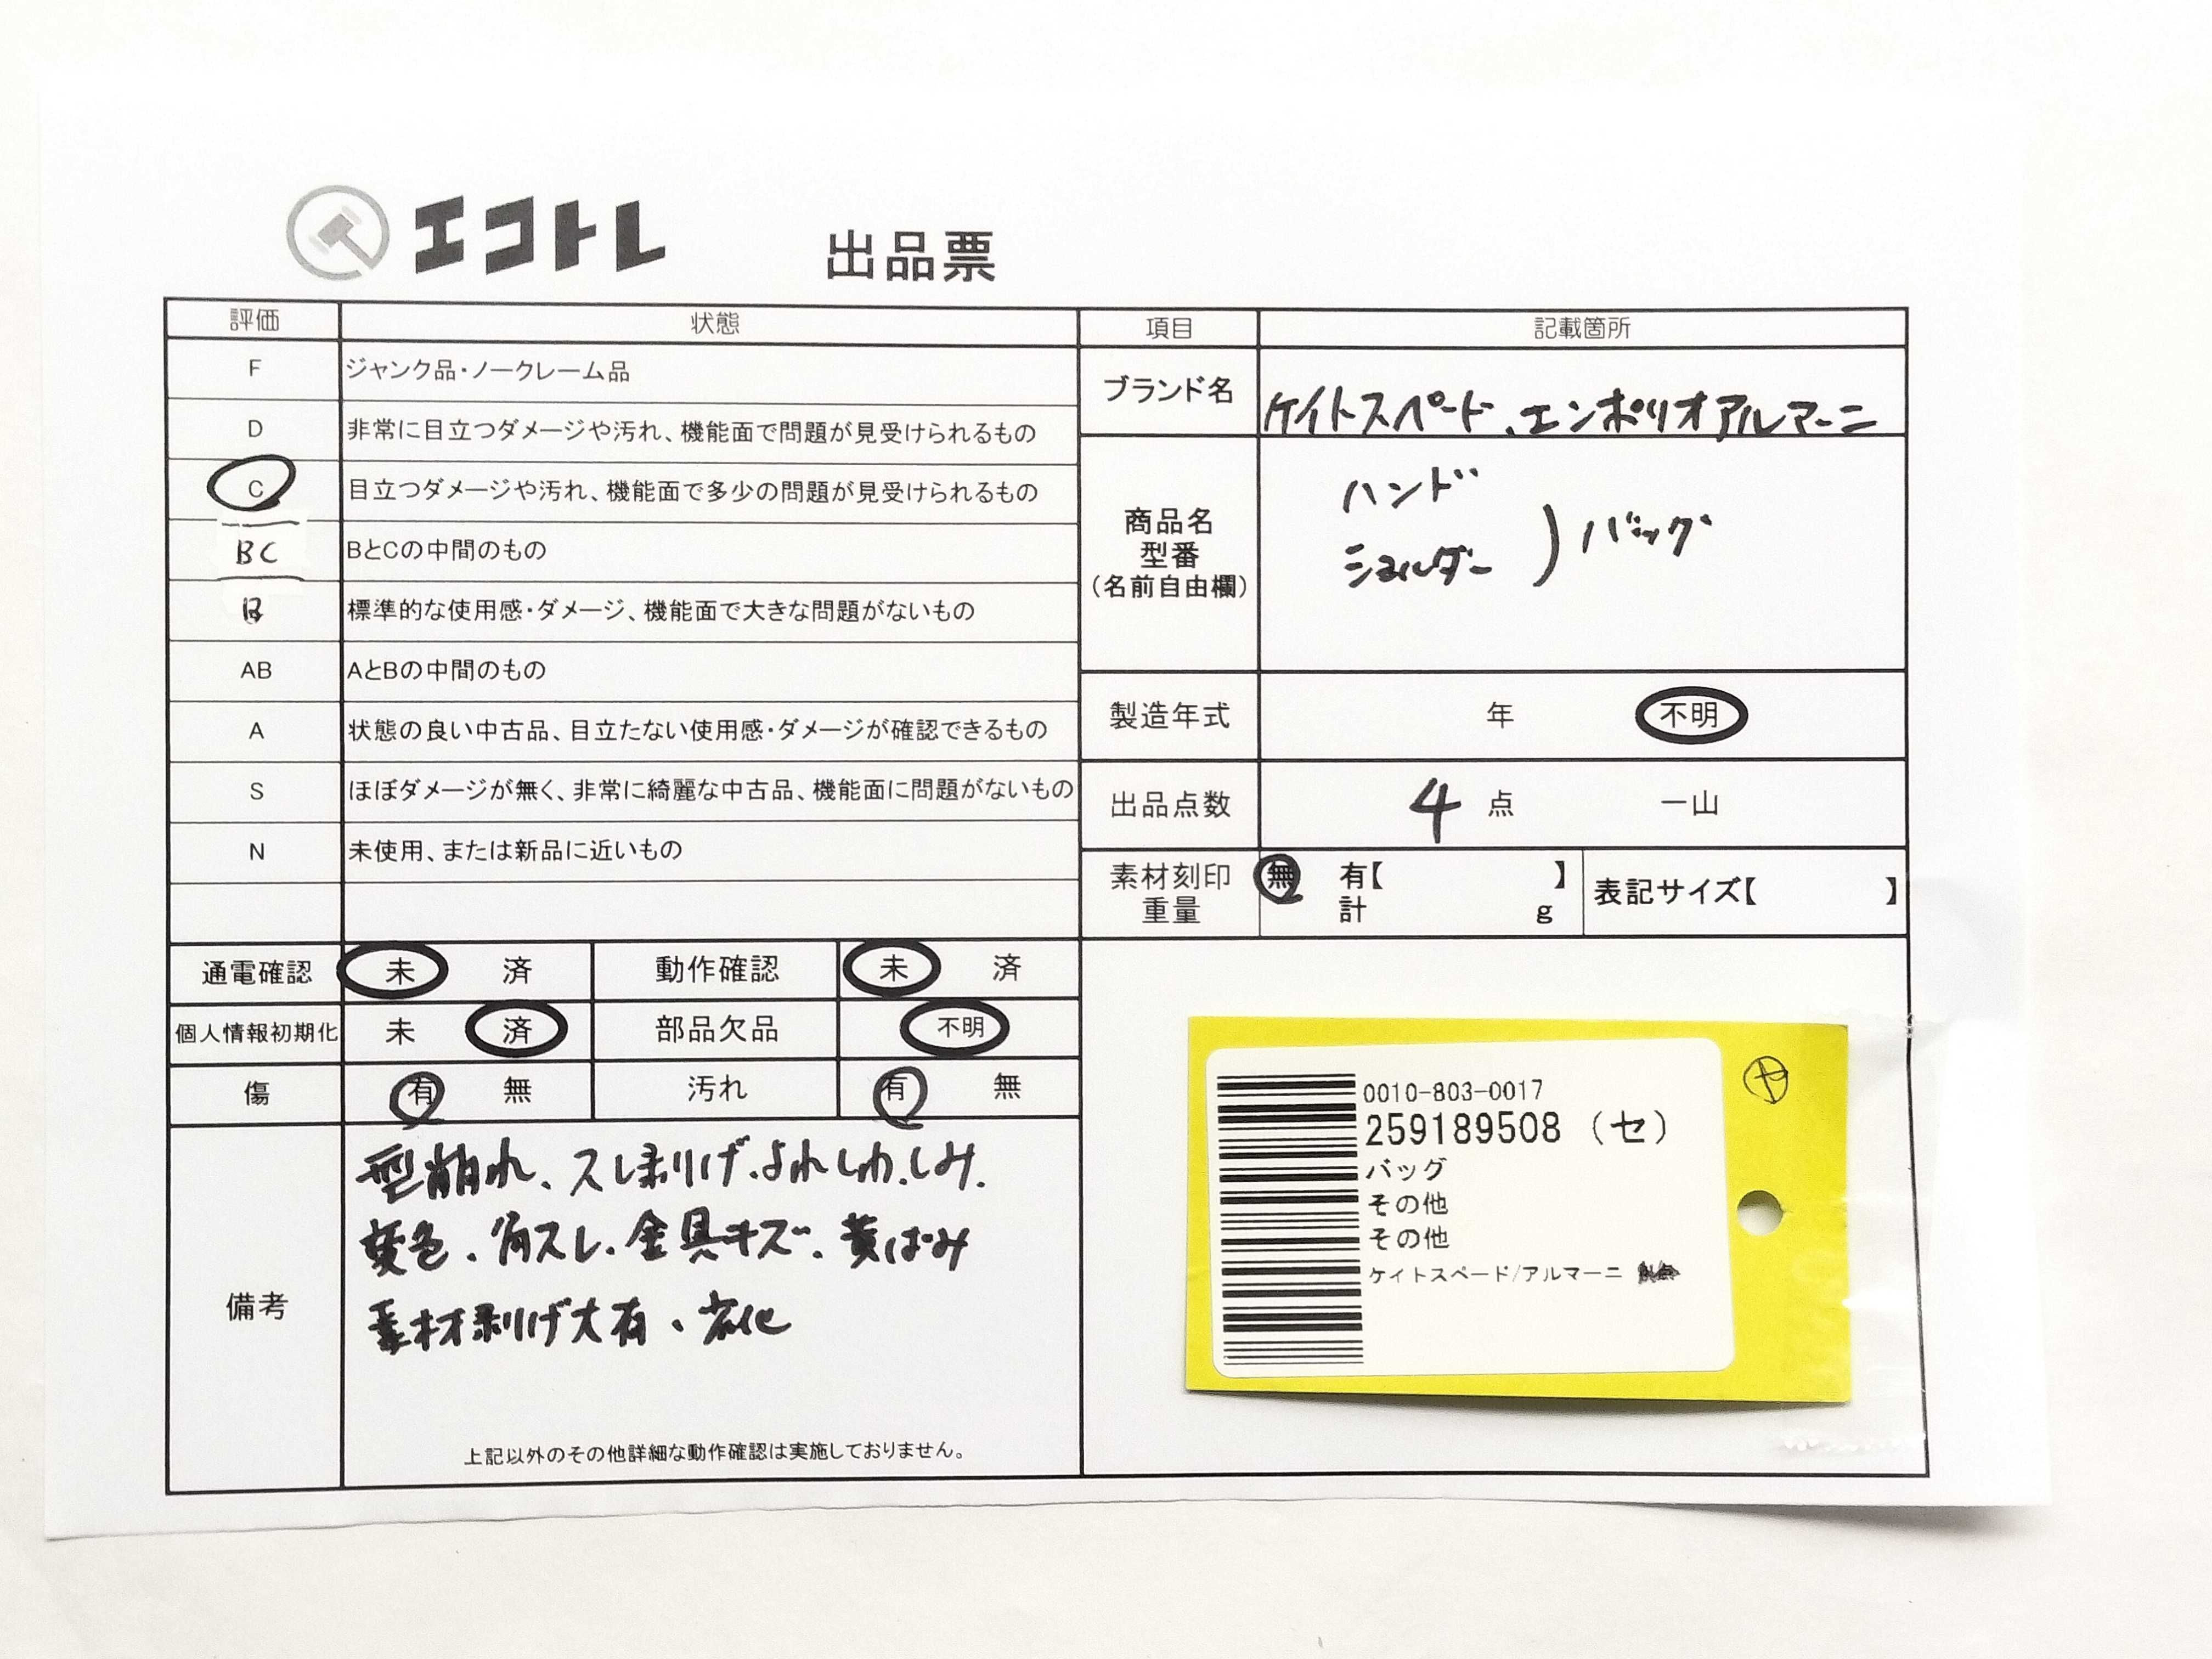 エコトレ 出品票
評価 状態
F ジャンク品・ノークレーム品
D 非常に目立つダメージや汚れ、機能面で問題が見受けられるもの
C 目立つダメージや汚れ、機能面で多少の問題が見受けられるもの
BC BとCの中間のもの
B 標準的な使用感・ダメージ、機能面で大きな問題がないもの
AB AとBの中間のもの
A 状態の良い中古品、目立たない使用感・ダメージが確認できるもの
S ほぼダメージが無く、非常に綺麗な中古品、機能面に問題がないもの
N 未使用、または新品に近いもの
通電確認 未 済 動作確認 未 済
個人情報初期化 未 済 部品欠品 不明
傷 有 無 汚れ 有 無
備考
型崩れ、スレ剥げ、よれ、しわ、しみ、
変色、角スレ、金具キズ、黄ばみ
素材剥げ大有、劣化
上記以外のその他詳細な動作確認は実施しておりません。
項目 記載箇所
ブランド名 ケイトスペード、エンポリオアルマーニ
商品名
型番
(名前自由欄)
ハンド
ショルダー ) バッグ
製造年式 年 不明
出品点数 4 点 一山
素材刻印 無 有【 】
重量 計 g
表記サイズ【 】
0010-803-0017
259189508 (セ)
バッグ
その他
その他
ケイトスペード/アルマーニ